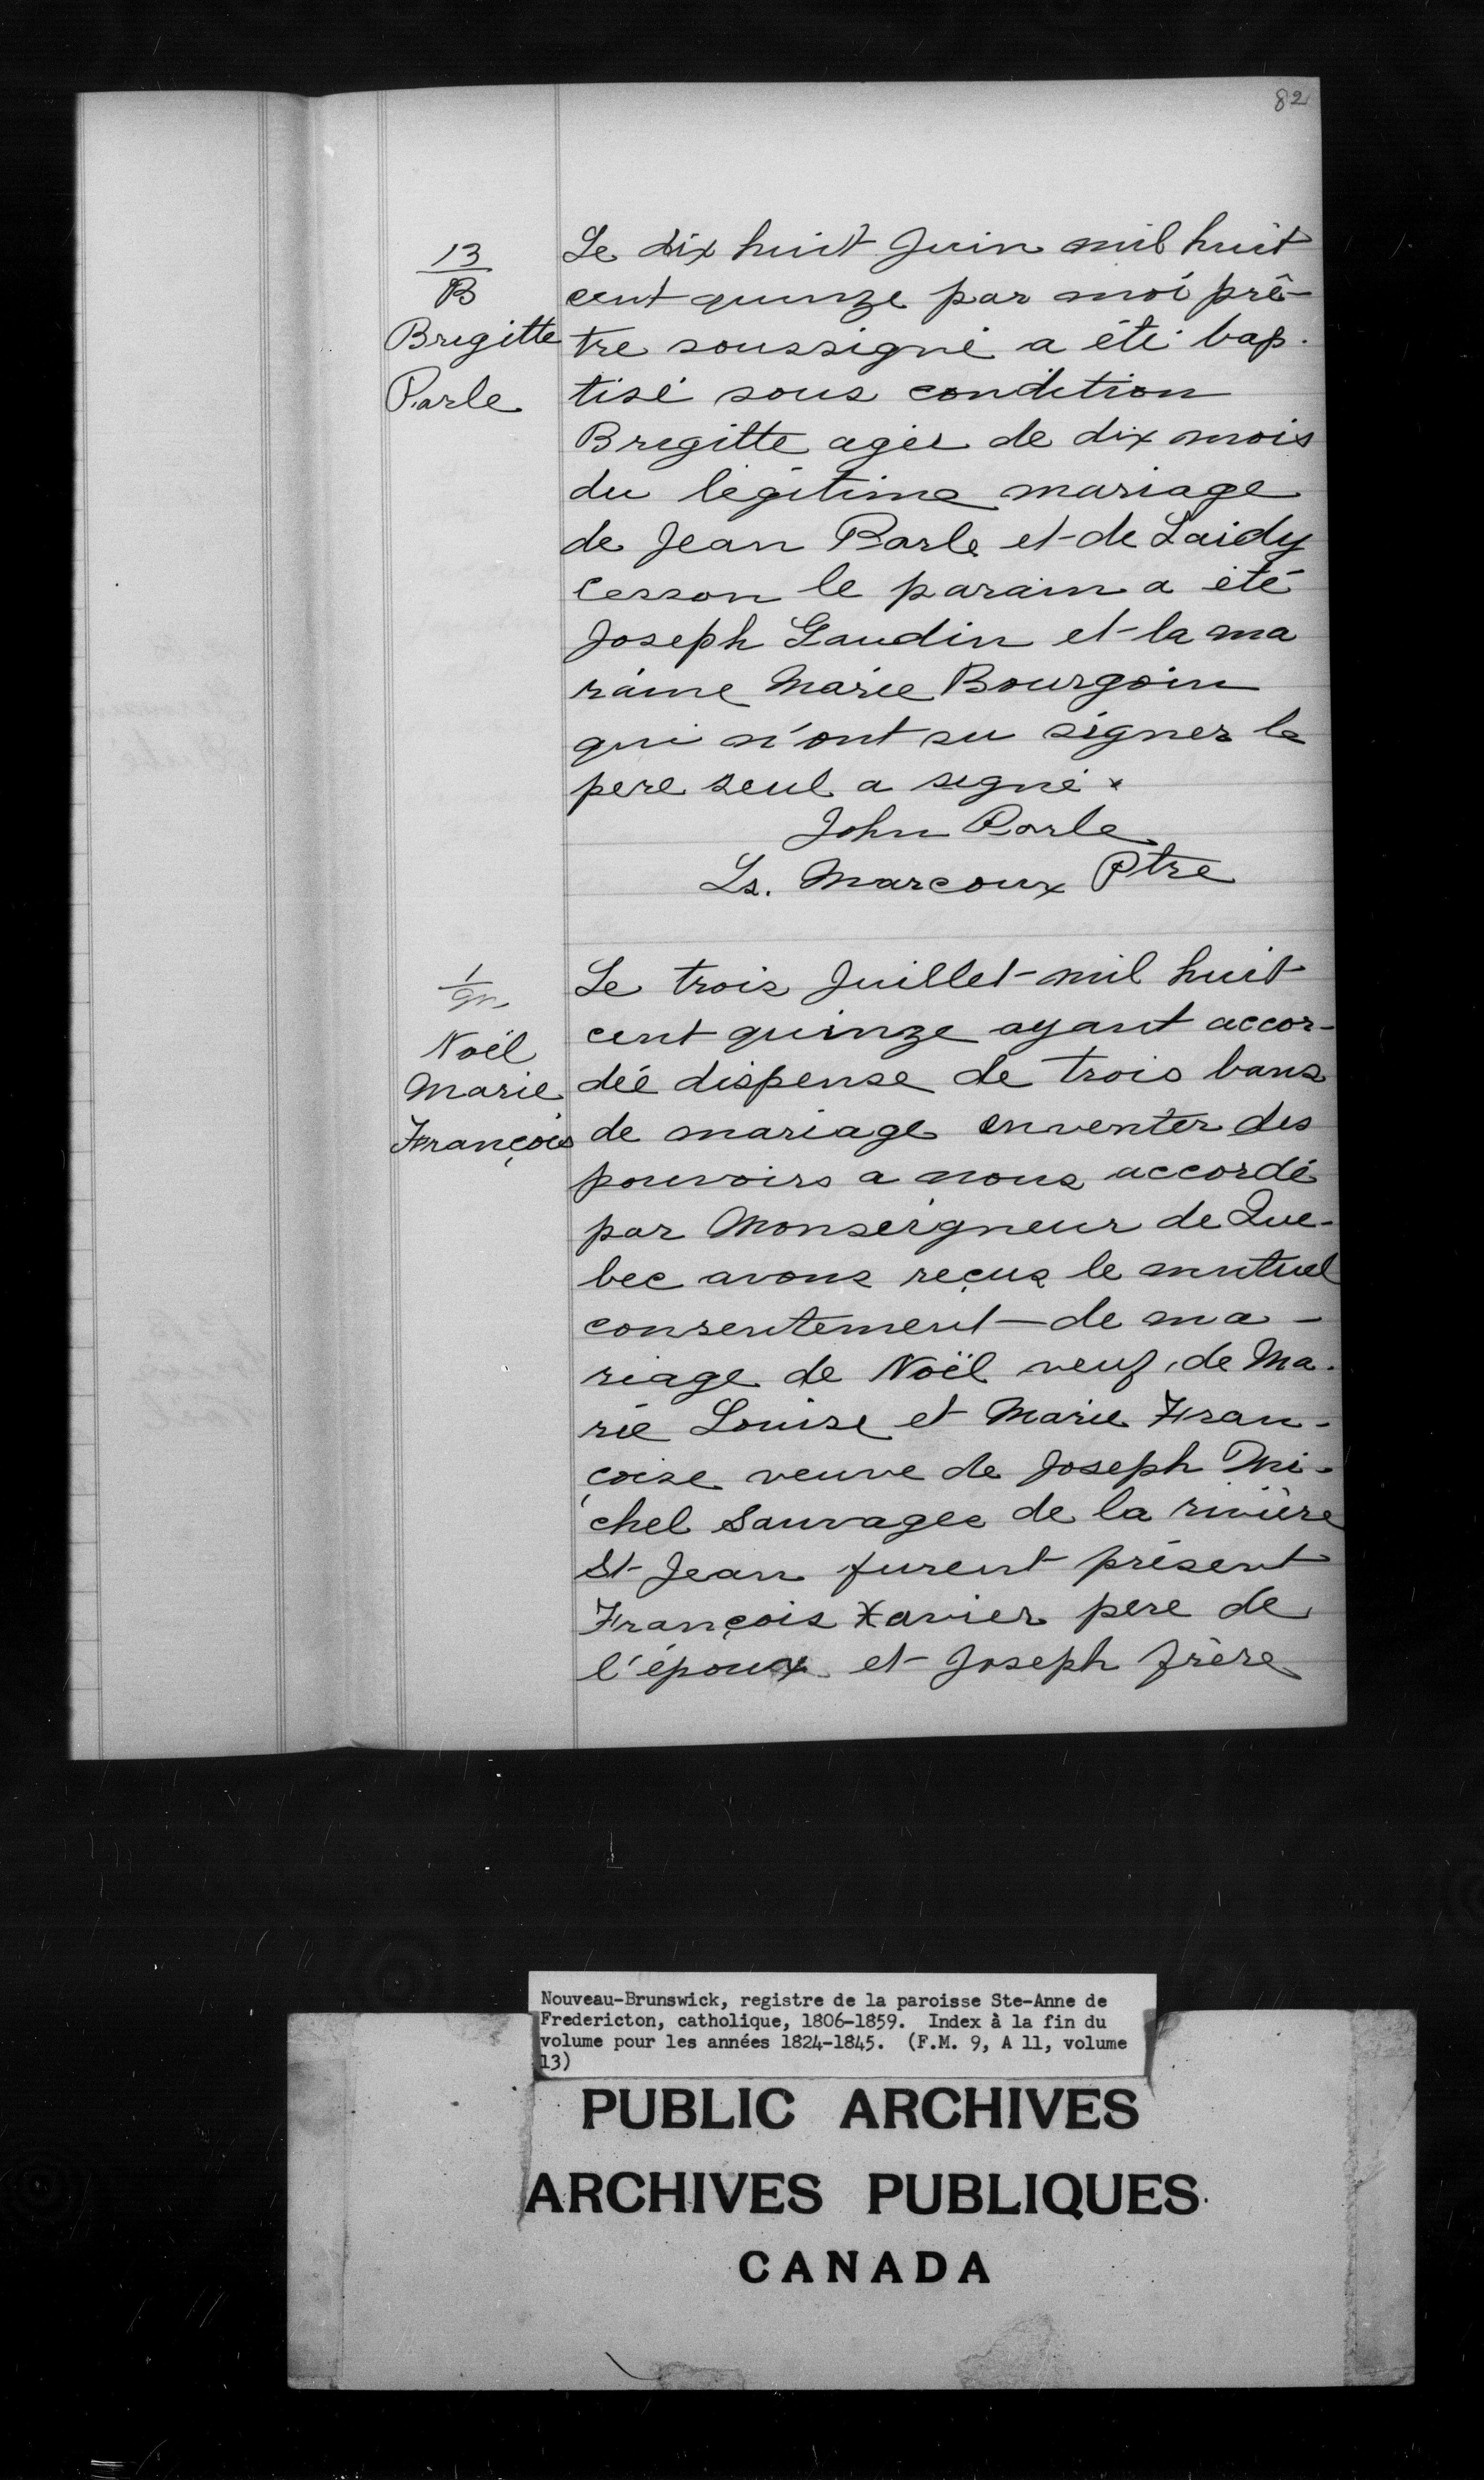 82
13
B
Brigitte
Parle
Le dix huit Juin mil huit
cent quinze par moi prê-
tre soussigné a été bap-
tisé sous condition
Brigitte agée de dix mois
du légitime mariage
de Jean Parle et de Laidy
Cesson le parain a été
Joseph Gaudin et la ma
raine Marie Bourgoin
qui n'ont su signer le
pere seul a signé.
John Parle
Ls. Marcoux Ptre
1
m
Noël
Marie
François
Le trois Juillet mil huit
cent quinze ayant accor-
dée dispense de trois bans
de mariage enventer des
pouvoirs a nous accordé
par Monseigneur de Que-
bec avons reçus le mutuel
consentement de ma-
riage de Noël veuf de Ma-
rie Louise et Marie Fran-
çoise veuve de Joseph Mi-
chel Sauvages de la rivière
St Jean furent présent
François Xavier pere de
l'époux et Joseph frère
Nouveau-Brunswick, registre de la paroisse Ste-Anne de
Fredericton, catholique, 1806-1859. Index à la fin du
volume pour les années 1824-1845. (F.M. 9, A 11, volume
13)
PUBLIC ARCHIVES
ARCHIVES PUBLIQUES
CANADA